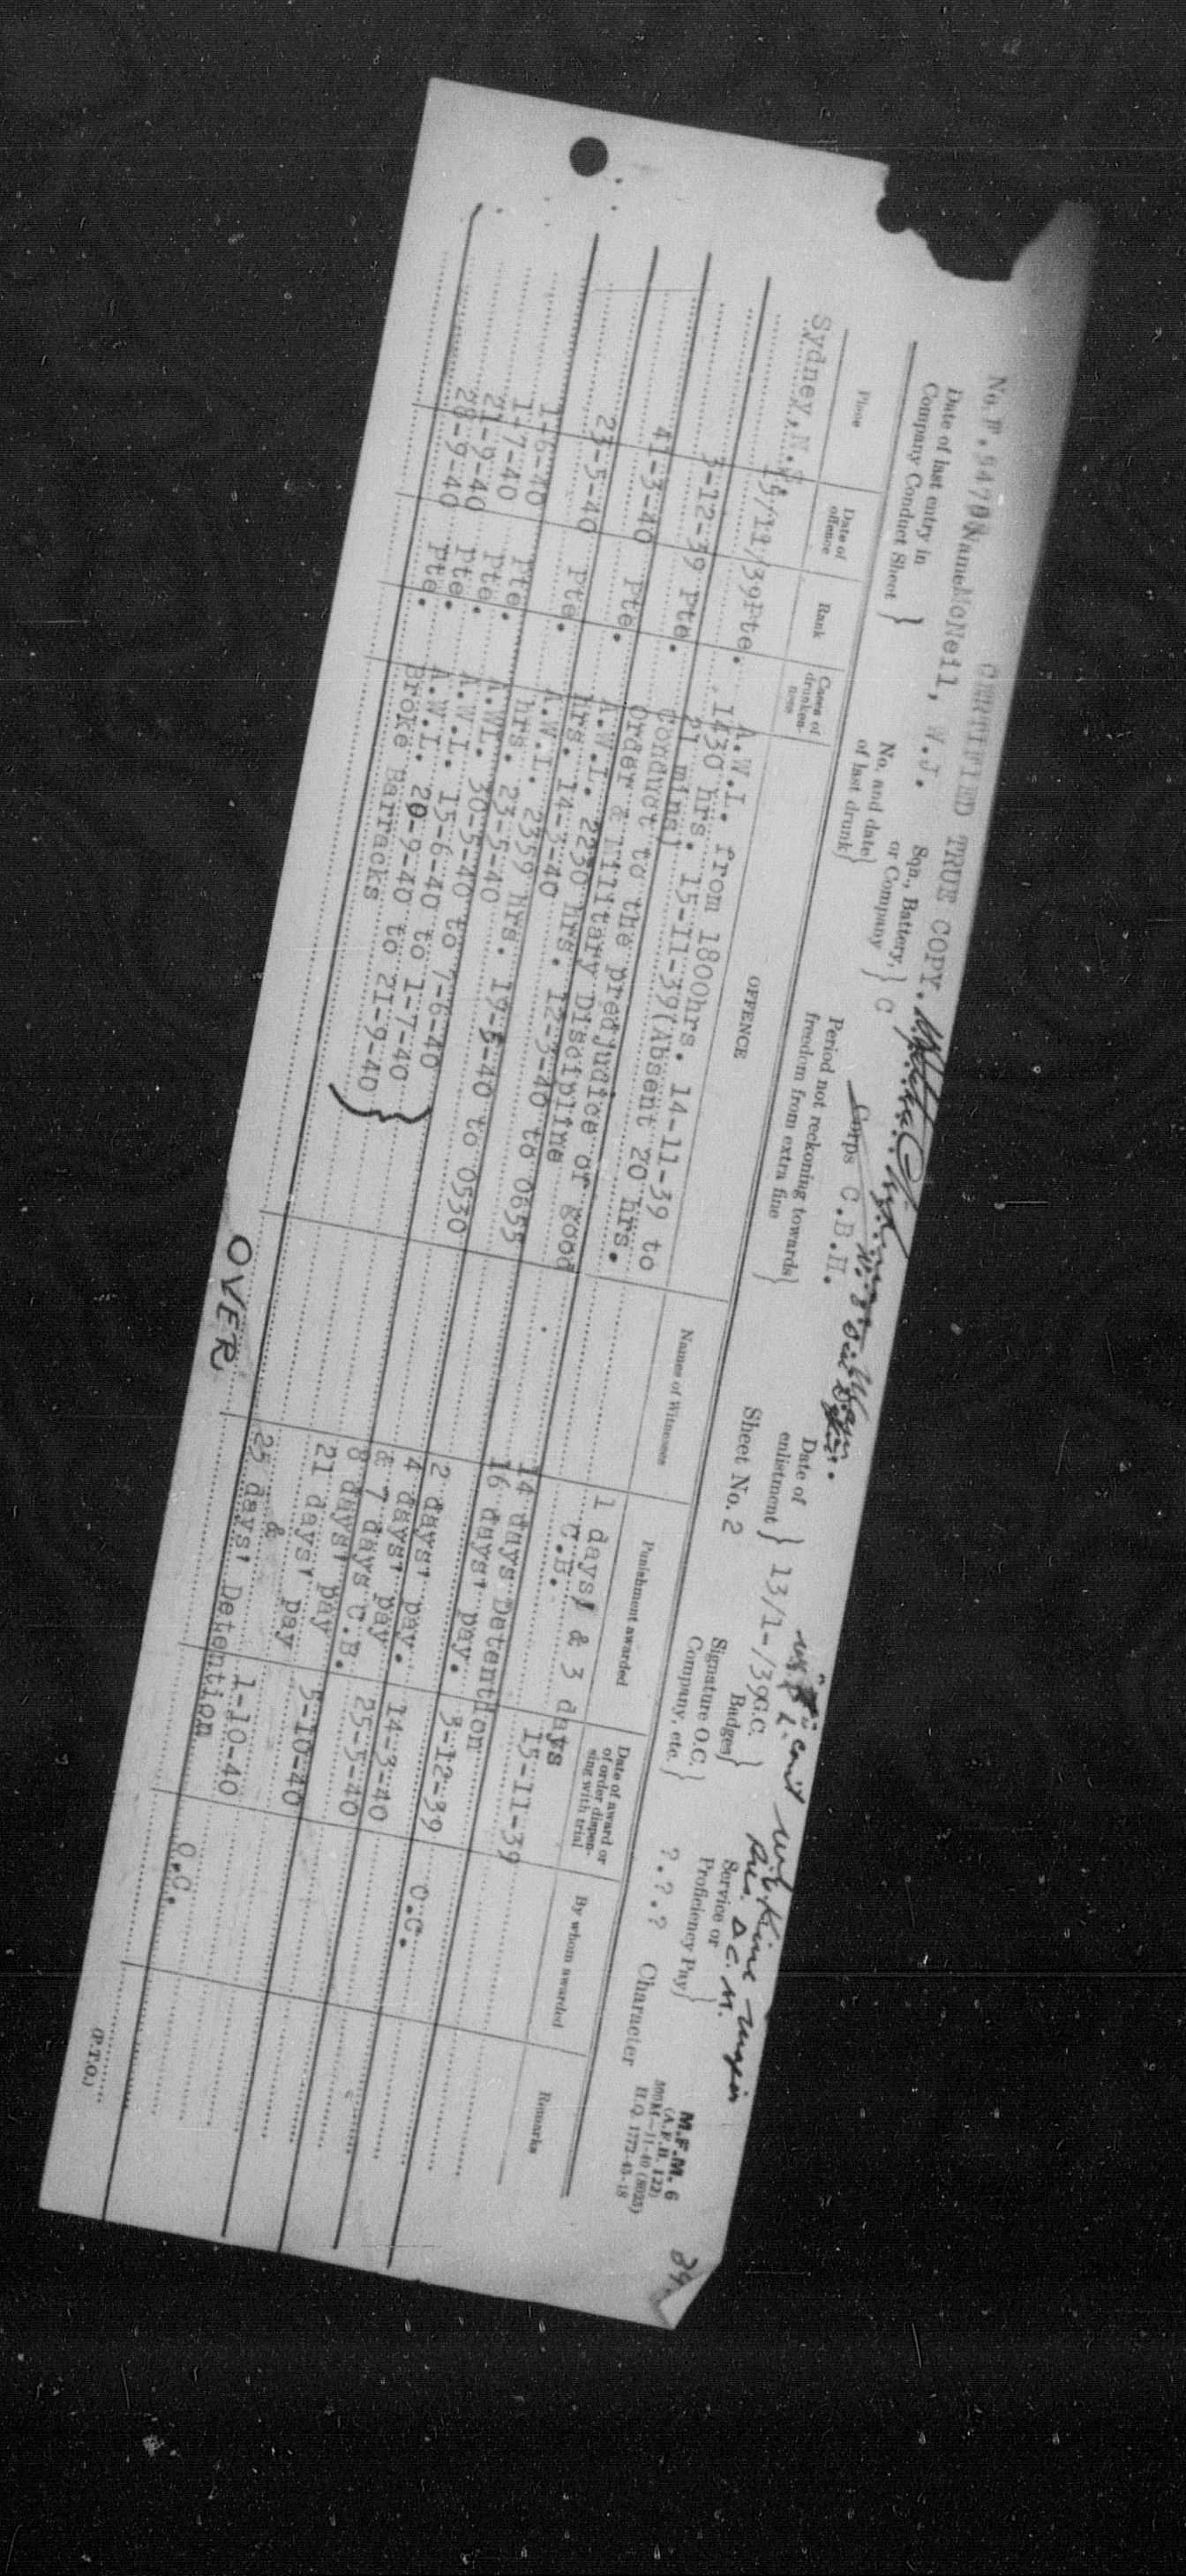 CERTIFIED TRUE COPY.
M.F.M. 6
(A.F.B. 122)
H.Q. 1772-45-18
No. Name McNeil, W.J. Sqn., Battery, or Company } C Corps C.B.H. Date of enlistment } 13/1-/39 G.C. Badges } Service or Proficiency Pay } ?.?.? Character
Date of last entry in Company Conduct Sheet } No. and date of last drunk } Period not reckoning towards freedom from extra fine } Sheet No. 2 Signature O.C. Company, etc. }
Place Date of offence Rank Cases of drunken-ness OFFENCE Names of Witnesses Punishment awarded Date of award or of order dispen-sing with trial By whom awarded Remarks
Sydney, N.S. 15/11/39 Pte. A.W.L. from 1800hrs. 14-11-39 to 1 days' & 3 days 15-11-39
1430 hrs. 15-11-39(Absent 20 hrs. C.B.
3-12-39 Pte. 31 mins)
Conduct to the predjudice of good 14 days Detention 3-12-39 O.C.
Order & Military Discipline 16 days' pay.
4-3-40 Pte. A.W.L. 2230 hrs. 12-3-40 to 0655 2 days' pay. 14-3-40
hrs. 14-3-40
23-5-40 Pte. A.W.L. 2359 hrs. 19-5-40 to 0530 4 days' pay. 25-5-40
hrs. 23-5-40 & 7 days C.B.
1-6-40 Pte. A.WL. 30-5-40 to 7-6-40 8 days' pay
1-7-40 Pte. A.W.L. 15-6-40 to 1-7-40 21 days' pay 5-10-40
21-9-40 Pte. A.W.L. 20-9-40 to 21-9-40 } &
20-9-40 Pte. Broke Barracks 25 days' Detention 1-10-40 O.C.
OVER
(P.T.O.)